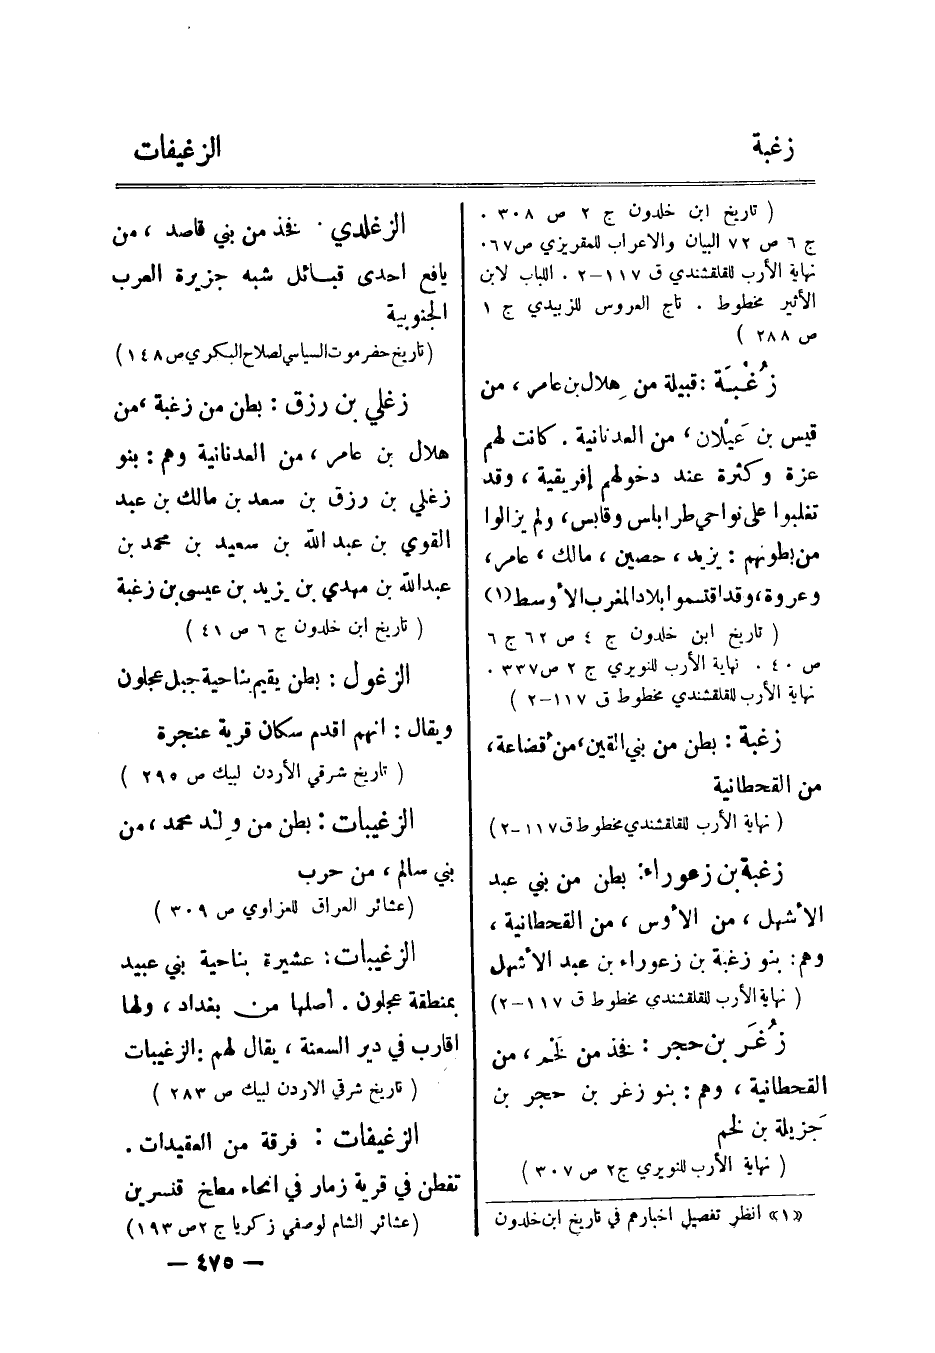 زغبة
الزغيفات
( تاريخ ابن خلدون ج ٢ ص ٣٠٨ .
ج ٦ ص ٧٢ البيان والاعراب للمقريزي ص ٠٦٧
نهاية الأرب للقلقشندي ق ١١٧–٢ . اللباب لابن
الأثير مخطوط . تاج العروس للزبيدي ج ١
ص ٢٨٨ )
زُغْبَة : قبيلة من هِلال بن عامر ، من
قيس بن عَيْلان ، من العدنانية . كانت لهم
عزة وكثرة عند دخولهم إفريقية ، وقد
تغلبوا على نواحي طراباس وقابس ، ولم يزالوا
من بطونهم : يزيد ، حصين ، مالك ، عامر ،
وعروة ، وقد اقتسموا بلاد المغرب الأوسط (١)
( تاريخ ابن خلدون ج ٤ ص ٦٢ ج ٦
ص ٤٠ . نهاية الأرب للنويري ج ٢ ص ٣٣٧ .
نهاية الأرب للقلقشندي مخطوط ق ١١٧–٢ )
زغبة : بطن من بني القين ، من قُضاعة ،
من القحطانية
( نهاية الأرب للقلقشندي مخطوط ق ١١٧–٢ )
زغبة بن زعوراء : بطن من بني عبد
الأشهل ، من الأوس ، من القحطانية ،
وهم : بنو زغبة بن زعوراء بن عبد الأشهل
( نهاية الأرب للقلقشندي مخطوط ق ١١٧–٢ )
زُغَر بن حجر : فخذ من لَخْم ، من
القحطانية ، وهم : بنو زغر بن حجر بن
جَزيلة بن لخم
( نهاية الأرب للنويري ج ٢ ص ٣٠٧ )
«١» انظر تفصيل اخبارهم في تاريخ ابن خلدون
الزغلدي . فخذ من بني قاصد ، من
يافع احدى قبائل شبه جزيرة العرب
الجنوبية
( تاريخ حضرموت السياسي لصلاح البكري ص ١٤٨ )
زغلي بن رزق : بطن من زغبة ، من
هلال بن عامر ، من العدنانية وهم : بنو
زغلي بن رزق بن سعد بن مالك بن عبد
القوي بن عبد الله بن سعيد بن محمد بن
عبدالله بن مهدي بن يزيد بن عيسى بن زغبة
( تاريخ ابن خلدون ج ٦ ص ٤١ )
الزغول : بطن يقيم بناحية جبل عجلون
ويقال : انهم اقدم سكان قرية عنجرة
( تاريخ شرقي الأردن لبيك ص ٢٩٥ )
الزغيبات : بطن من ولد محمد ، من
بني سالم ، من حرب
( عشائر العراق للعزاوي ص ٣٠٩ )
الزغيبات : عشيرة بناحية بني عبيد
بمنطقة عجلون . أصلها من بغداد ، ولها
اقارب في دير السعنة ، يقال لهم : الزغيبات
( تاريخ شرقي الاردن لبيك ص ٢٨٣ )
الزغيفات : فرقة من العقيدات .
تقطن في قرية زمار في انحاء مطخ قنسرين
( عشائر الشام لوصفي زكريا ج ٢ ص ١٩٣ )
— ٤٧٥ —